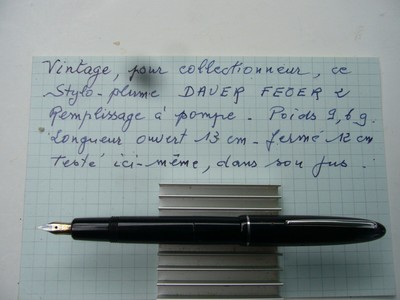 Vintage, pour collectionneur, ce
Stylo-plume DAUER FEDER
Remplissage à pompe. Poids 9,6 g.
Longueur ouvert 13 cm - fermé 12 cm
Testé ici-même, dans son jus.